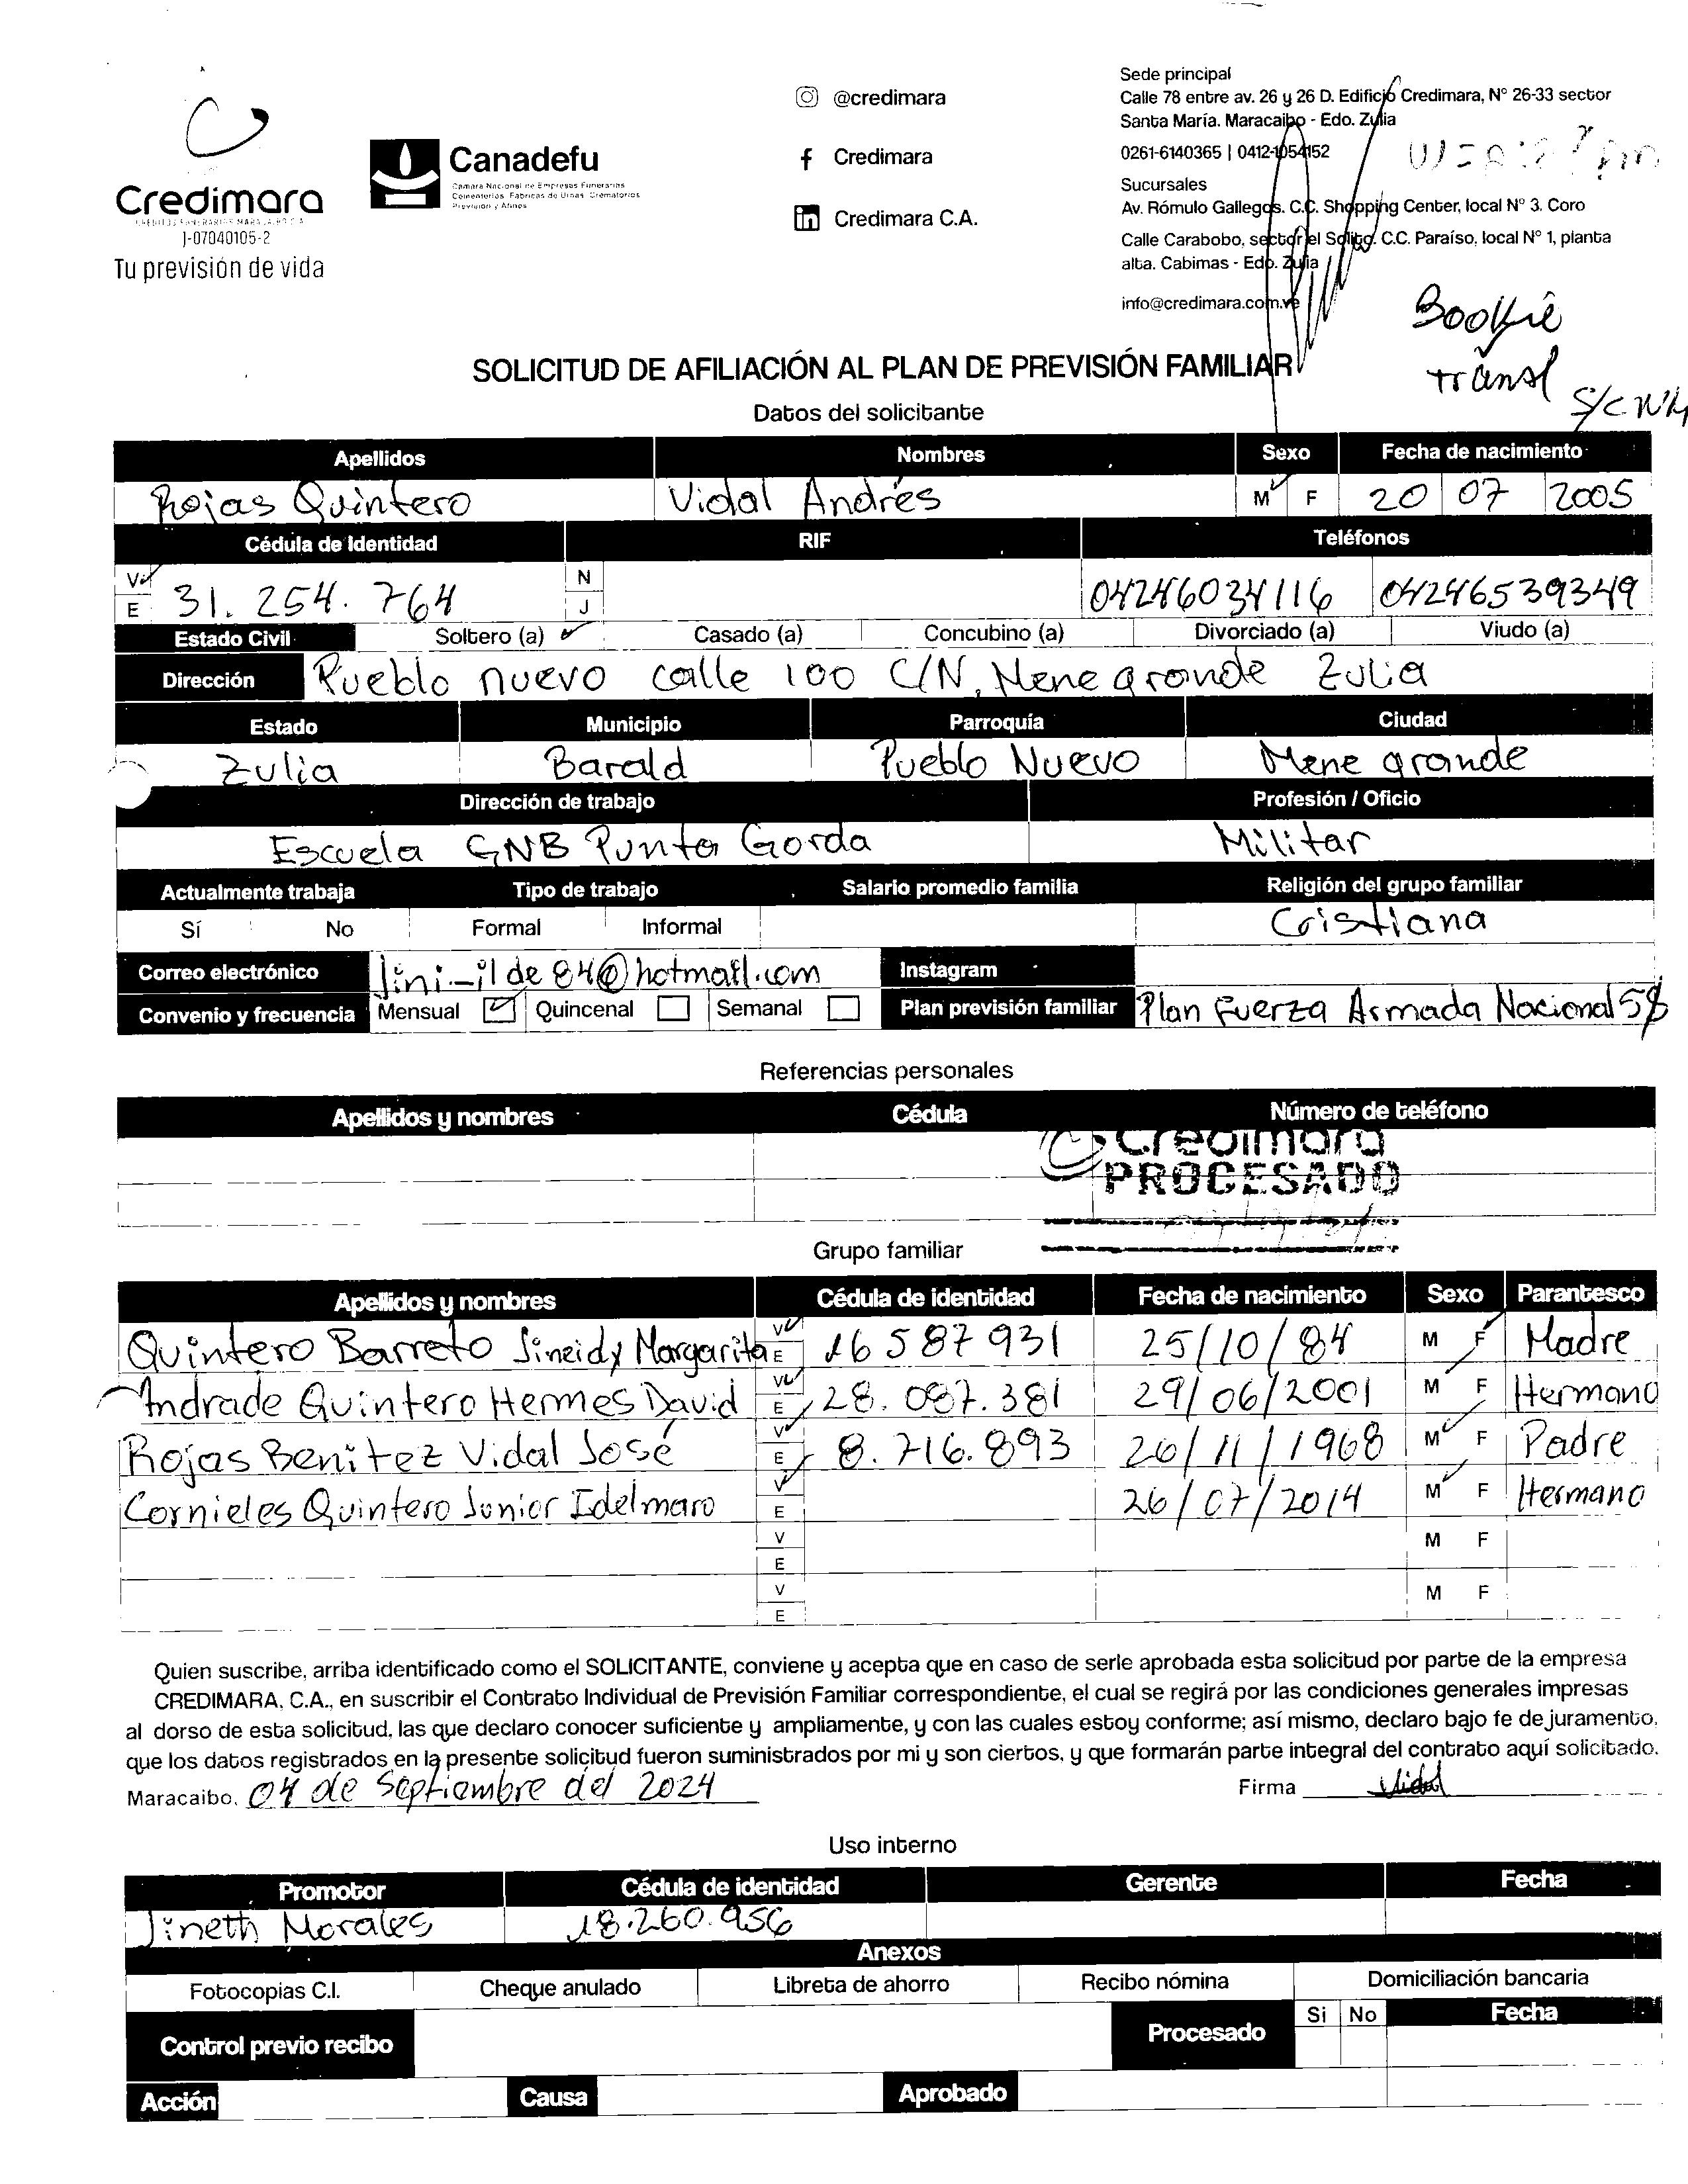 Credimara
J-07040105-2
Tu previsión de vida
Canadefu
Cámara Nacional de Empresas Funerarias
Cementerios, Fábricas de Urnas, Crematorios
Previsión y Afines
@credimara
Credimara
Credimara C.A.
Sede principal
Calle 78 entre av. 26 y 26 D. Edificio Credimara, N° 26-33 sector
Santa María. Maracaibo - Edo. Zulia
0261-6140365 | 0412-1054152
Sucursales
Av. Rómulo Gallegos. C.C. Shopping Center, local N° 3. Coro
Calle Carabobo, sector el Solito. C.C. Paraíso, local N° 1, planta
alta. Cabimas - Edo. Zulia
info@credimara.com.ve
transl
SOLICITUD DE AFILIACIÓN AL PLAN DE PREVISIÓN FAMILIAR
Datos del solicitante
Apellidos Nombres Sexo Fecha de nacimiento
Rojas Quintero Vidal Andrés M F 20 07 2005
Cédula de Identidad RIF Teléfonos
V E 31.254.764 N J 04246034116 04246539349
Estado Civil Soltero (a) Casado (a) Concubino (a) Divorciado (a) Viudo (a)
Dirección Pueblo nuevo calle 100 C/N, Mene grande Zulia
Estado Municipio Parroquia Ciudad
Zulia Barald Pueblo Nuevo Mene grande
Dirección de trabajo Profesión / Oficio
Escuela GNB Punta Gorda Militar
Actualmente trabaja Tipo de trabajo Salario promedio familia Religión del grupo familiar
Sí No Formal Informal Cristiana
Correo electrónico jini-ilde84@hotmail.com Instagram
Convenio y frecuencia Mensual Quincenal Semanal Plan previsión familiar Plan Fuerza Armada Nacional 5$
Referencias personales
Apellidos y nombres Cédula Número de teléfono
Credimara
PROCESADO
Grupo familiar
Apellidos y nombres Cédula de identidad Fecha de nacimiento Sexo Parantesco
Quintero Barreto Jineidy Margarita V E 16587931 25/10/84 M F Madre
Andrade Quintero Hermes David V E 28.087.381 29/06/2001 M F Hermano
Rojas Benitez Vidal José V E 8.716.893 26/11/1968 M F Padre
Cornieles Quintero Junior Idelmaro V E 26/07/2014 M F Hermano
V E M F
V E M F
Quien suscribe, arriba identificado como el SOLICITANTE, conviene y acepta que en caso de serle aprobada esta solicitud por parte de la empresa
CREDIMARA, C.A., en suscribir el Contrato Individual de Previsión Familiar correspondiente, el cual se regirá por las condiciones generales impresas
al dorso de esta solicitud, las que declaro conocer suficiente y ampliamente, y con las cuales estoy conforme; así mismo, declaro bajo fe de juramento,
que los datos registrados en la presente solicitud fueron suministrados por mi y son ciertos, y que formarán parte integral del contrato aquí solicitado.
Maracaibo, 04 de Septiembre del 2024 Firma Vidal
Uso interno
Promotor Cédula de identidad Gerente Fecha
Jineth Morales 18.260.956
Anexos
Fotocopias C.I. Cheque anulado Libreta de ahorro Recibo nómina Domiciliación bancaria
Control previo recibo Procesado Si No Fecha
Acción Causa Aprobado